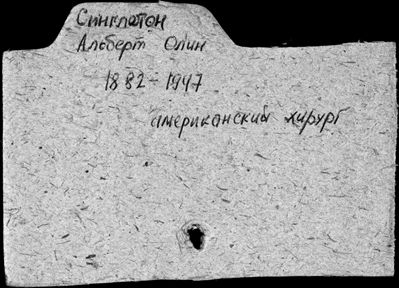 Синглтон
Альберт Олин
1882-1947
американский хирург